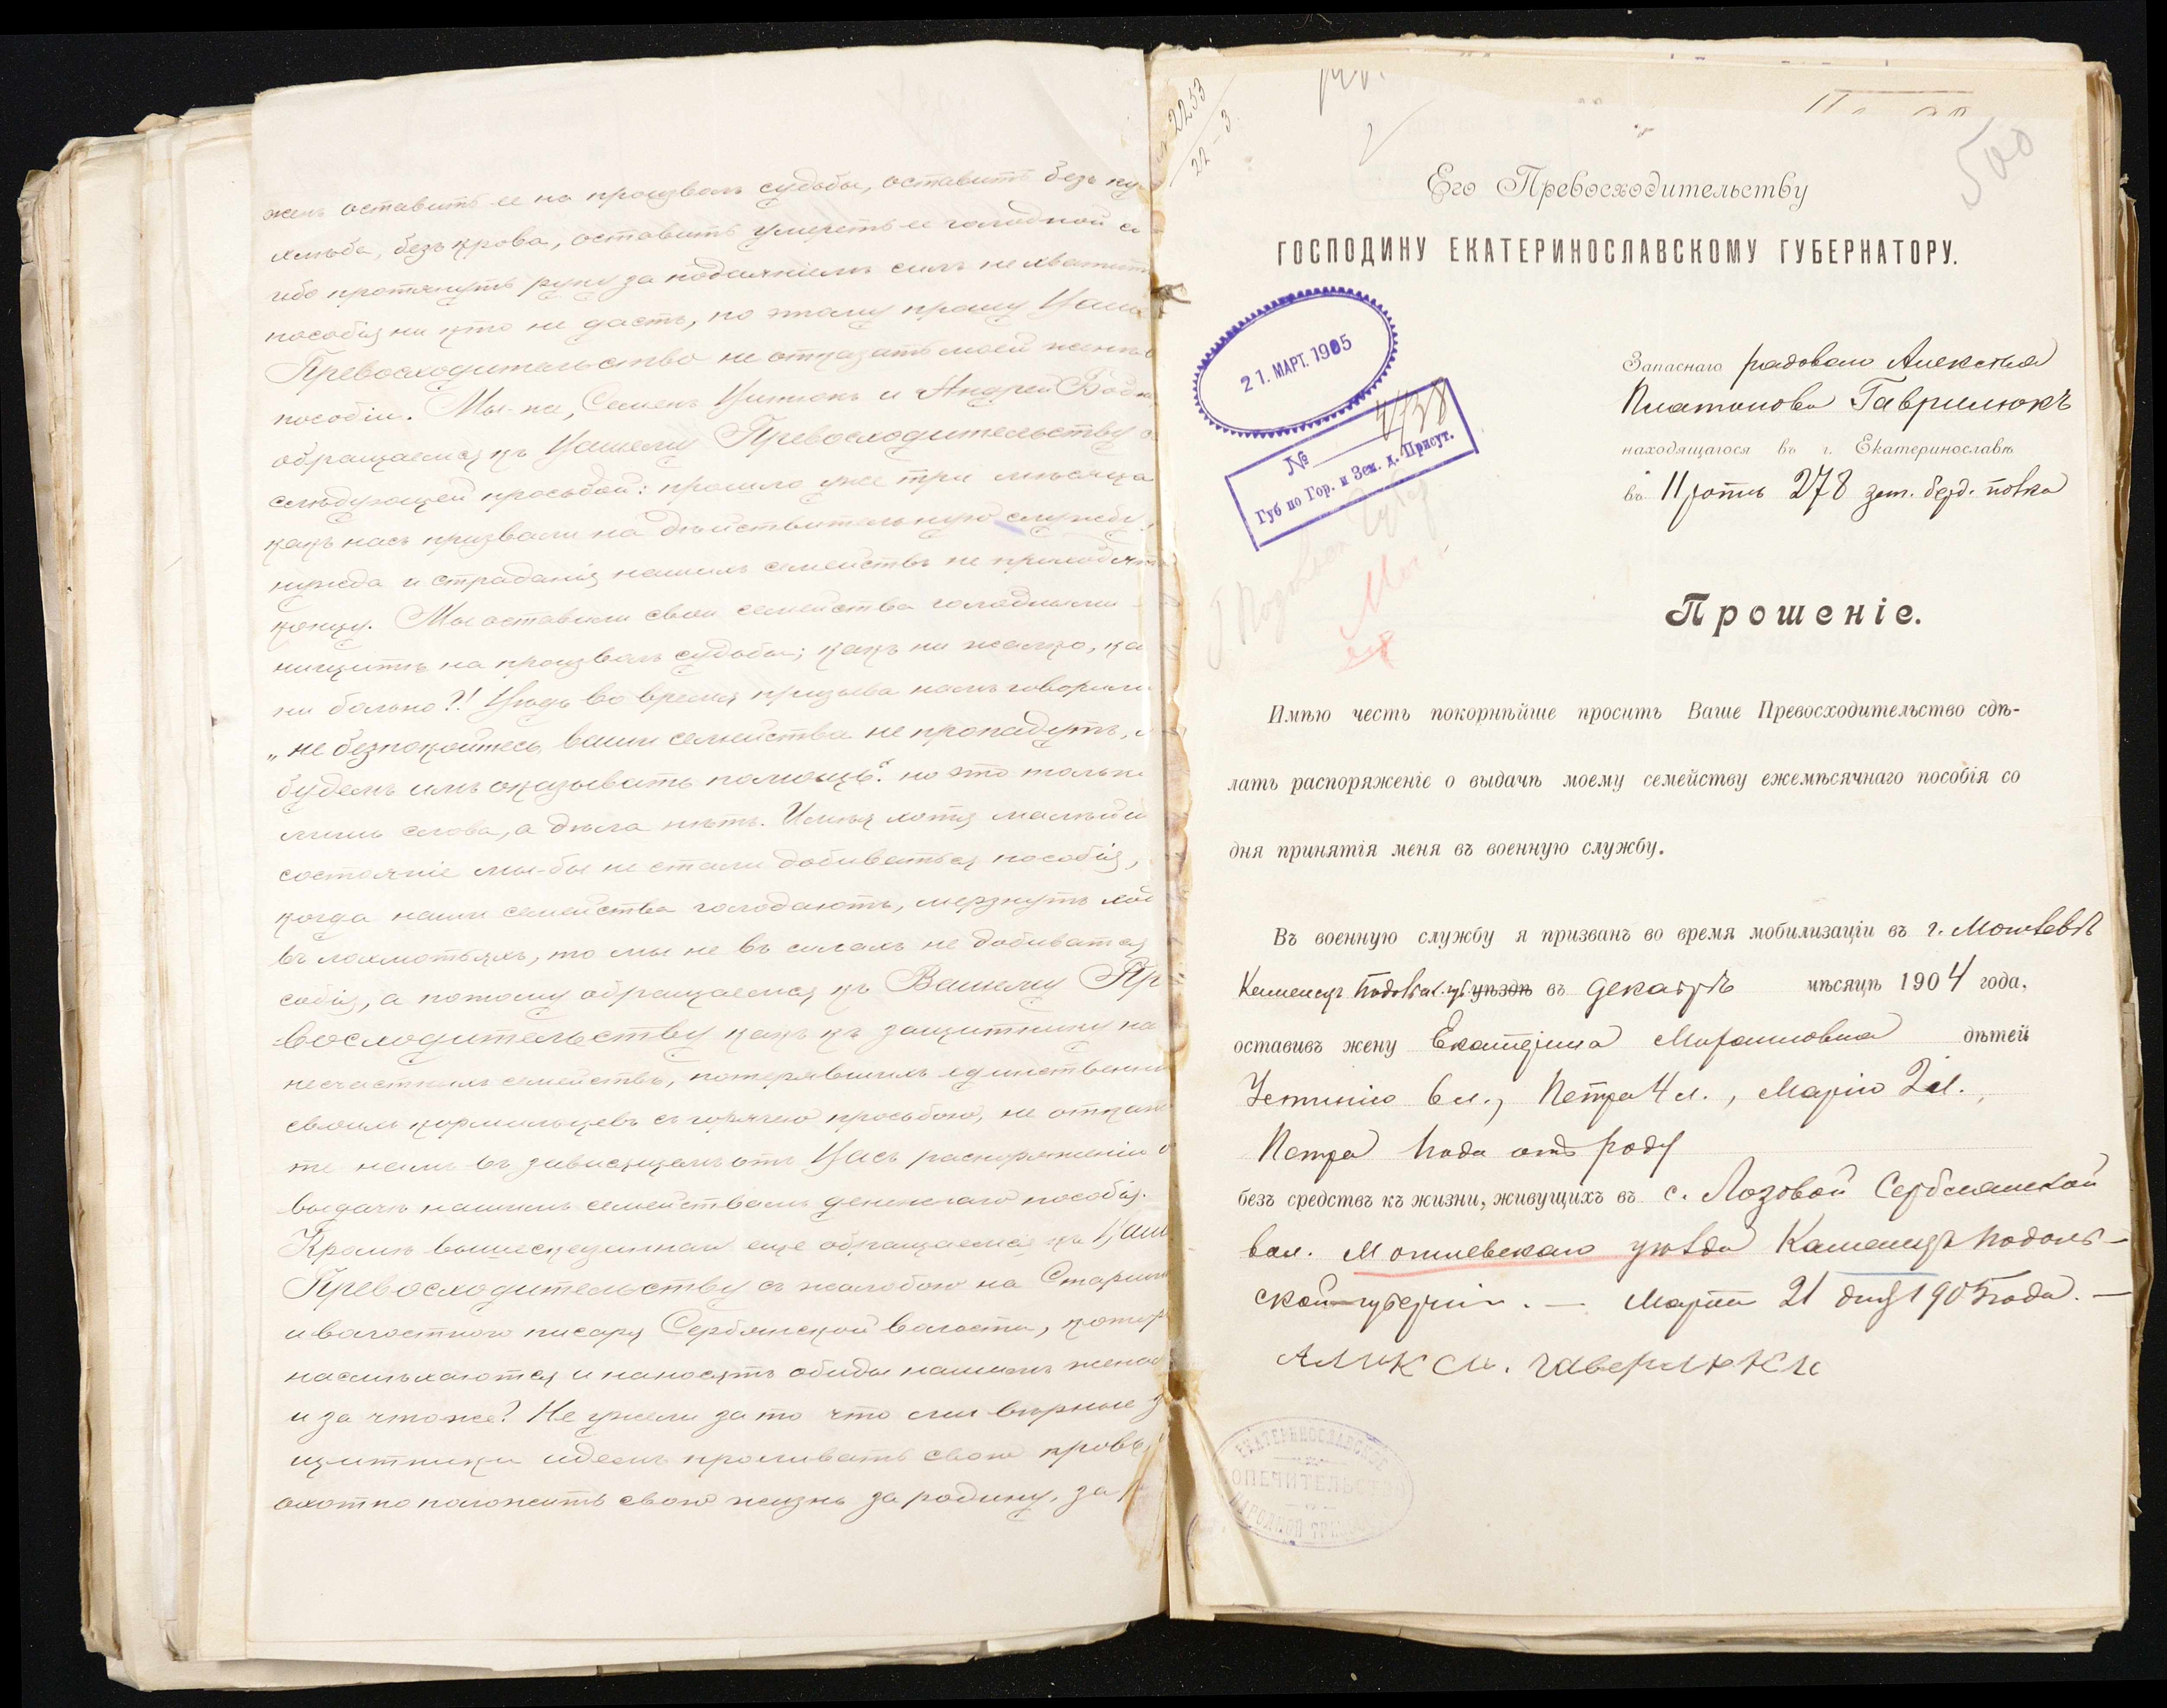 жень оставить ее на произволъ судьбы, оставить безъ ку
хлѣба, безъ крова, оставить умереть ее голодной с
ибо протянуть руку за подаяніемъ силъ не хватитъ
пособія ни кто не дастъ, по этому прошу Ваше
Превосходительство не отказать моей женѣ о
пособіи. Мы-же, Семенъ и Андрей Бодна
обращаемся къ Вашему Превосходительству с
слѣдующей просьбой: прошло уже три мѣсяца
какъ насъ призвали на дѣйствительную службу,
нужда и страданія нашимъ семействъ не приходятъ
концу. Мы оставили свои семейства голодными
нищить на произволъ судьбы; какъ ни жалко, ка
ни больно?! Вѣдь во время призыва намъ говорили
„не безпокойтесь ваши семейства не пропадутъ, м
будемъ имъ оказывать помощь“ но это только
лишь слова, а дѣла нѣтъ. Имѣя хотя малѣйш
состояніе мы-бы не стали добиваться пособія,
когда наши семейства голодаютъ, мерзнутъ хо
въ лохмотьяхъ, то мы не въ силахъ не добиватся
собія, а потому обращаемся къ Вашему Пр
восходительству какъ къ защитнику на
несчастныхъ семействъ, потерявшихъ единственны
своихъ кормильцевъ съ горячею просьбою, не откажи
те намъ въ зависящемъ отъ Васъ распоряженіи о
выдачѣ нашимъ семействамъ денежнаго пособія.
Кромѣ еще обращаемся къ Ваш
Превосходительству съ жалобою на Старшин
и волостного писаря Сербянской волости, котор
насмѣхаются и наносятъ обиды нашимъ женам
и за что же? Не ужели за то что мы вѣрные з
щитники идемъ проливать свою кровь,
охотно положить свою жизнь за родину, за
2253
22-3
500
Его Превосходительству
ГОСПОДИНУ ЕКАТЕРИНОСЛАВСКОМУ ГУБЕРНАТОРУ.
21. МАРТ. 1905
№ 4738
Губ по Гор. и Зем. д. Присут.
Запаснаго рядового Алексѣя
Платонова Гаврилюкъ
находящагося въ г. Екатеринославѣ
въ 11 ротѣ 278 полка
Прошеніе.
Имѣю честь покорнѣйше просить Ваше Превосходительство сдѣ-
лать распоряженіе о выдачѣ моему семейству ежемѣсячнаго пособія со
дня принятія меня въ военную службу.
Въ военную службу я призванъ во время мобилизаціи въ г. Могилевѣ
Каменецъ Подольс. гб уѣздѣ въ декабрѣ мѣсяцѣ 1904 года,
оставивъ жену Екатерина дѣтей
Устинію 6 л., Петра 4 л., Марію 2 л.,
Петра года отъ роду
безъ средствъ къ жизни, живущихъ въ с. Лозовой Сербянской
вол. Могилевскаго уѣзда Каменецъ Подоль-
ской губерніи. — Марта 21 дня 1905 года. —
ЕКАТЕРИНОСЛАВСКОЕ
ПОПЕЧИТЕЛЬСТВО
НАРОДНОЙ ТРЕЗВОСТИ